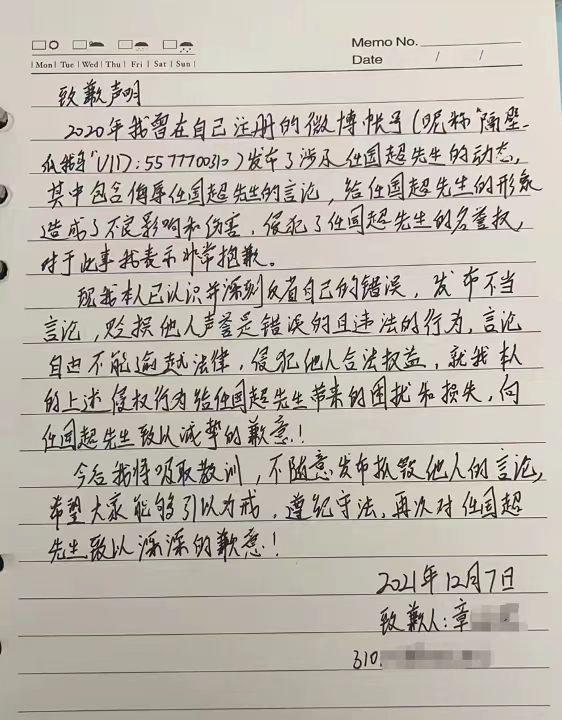 Memo No.
Mon Tue Wed Thu Fri Sat Sun
Date / /
致歉声明
2020年我曾在自己注册的微博帐号(呢称"隔壁
瓜我哥"UID:5577700310)发布了涉及任国超先生的动态,
其中包含侮辱任国超先生的言论,给任国超先生的形象
造成了不良影响和伤害,侵犯了任国超先生的名誉权,
对于此事我表示非常抱歉。
现我本人已认识并深刻反省自己的错误,发布不当
言论,贬损他人声誉是错误的且违法的行为,言论
自由不能逾越法律,侵犯他人合法权益,就我本人
的上述侵权行为给任国超先生带来的困扰和损失,向
任国超先生致以诚挚的歉意!
今后我将吸取教训,不随意发布抵毁他人的言论,
希望大家能够引以为戒,遵纪守法,再次对任国超
先生致以深深的歉意!
2021年12月7日
致歉人:章
310